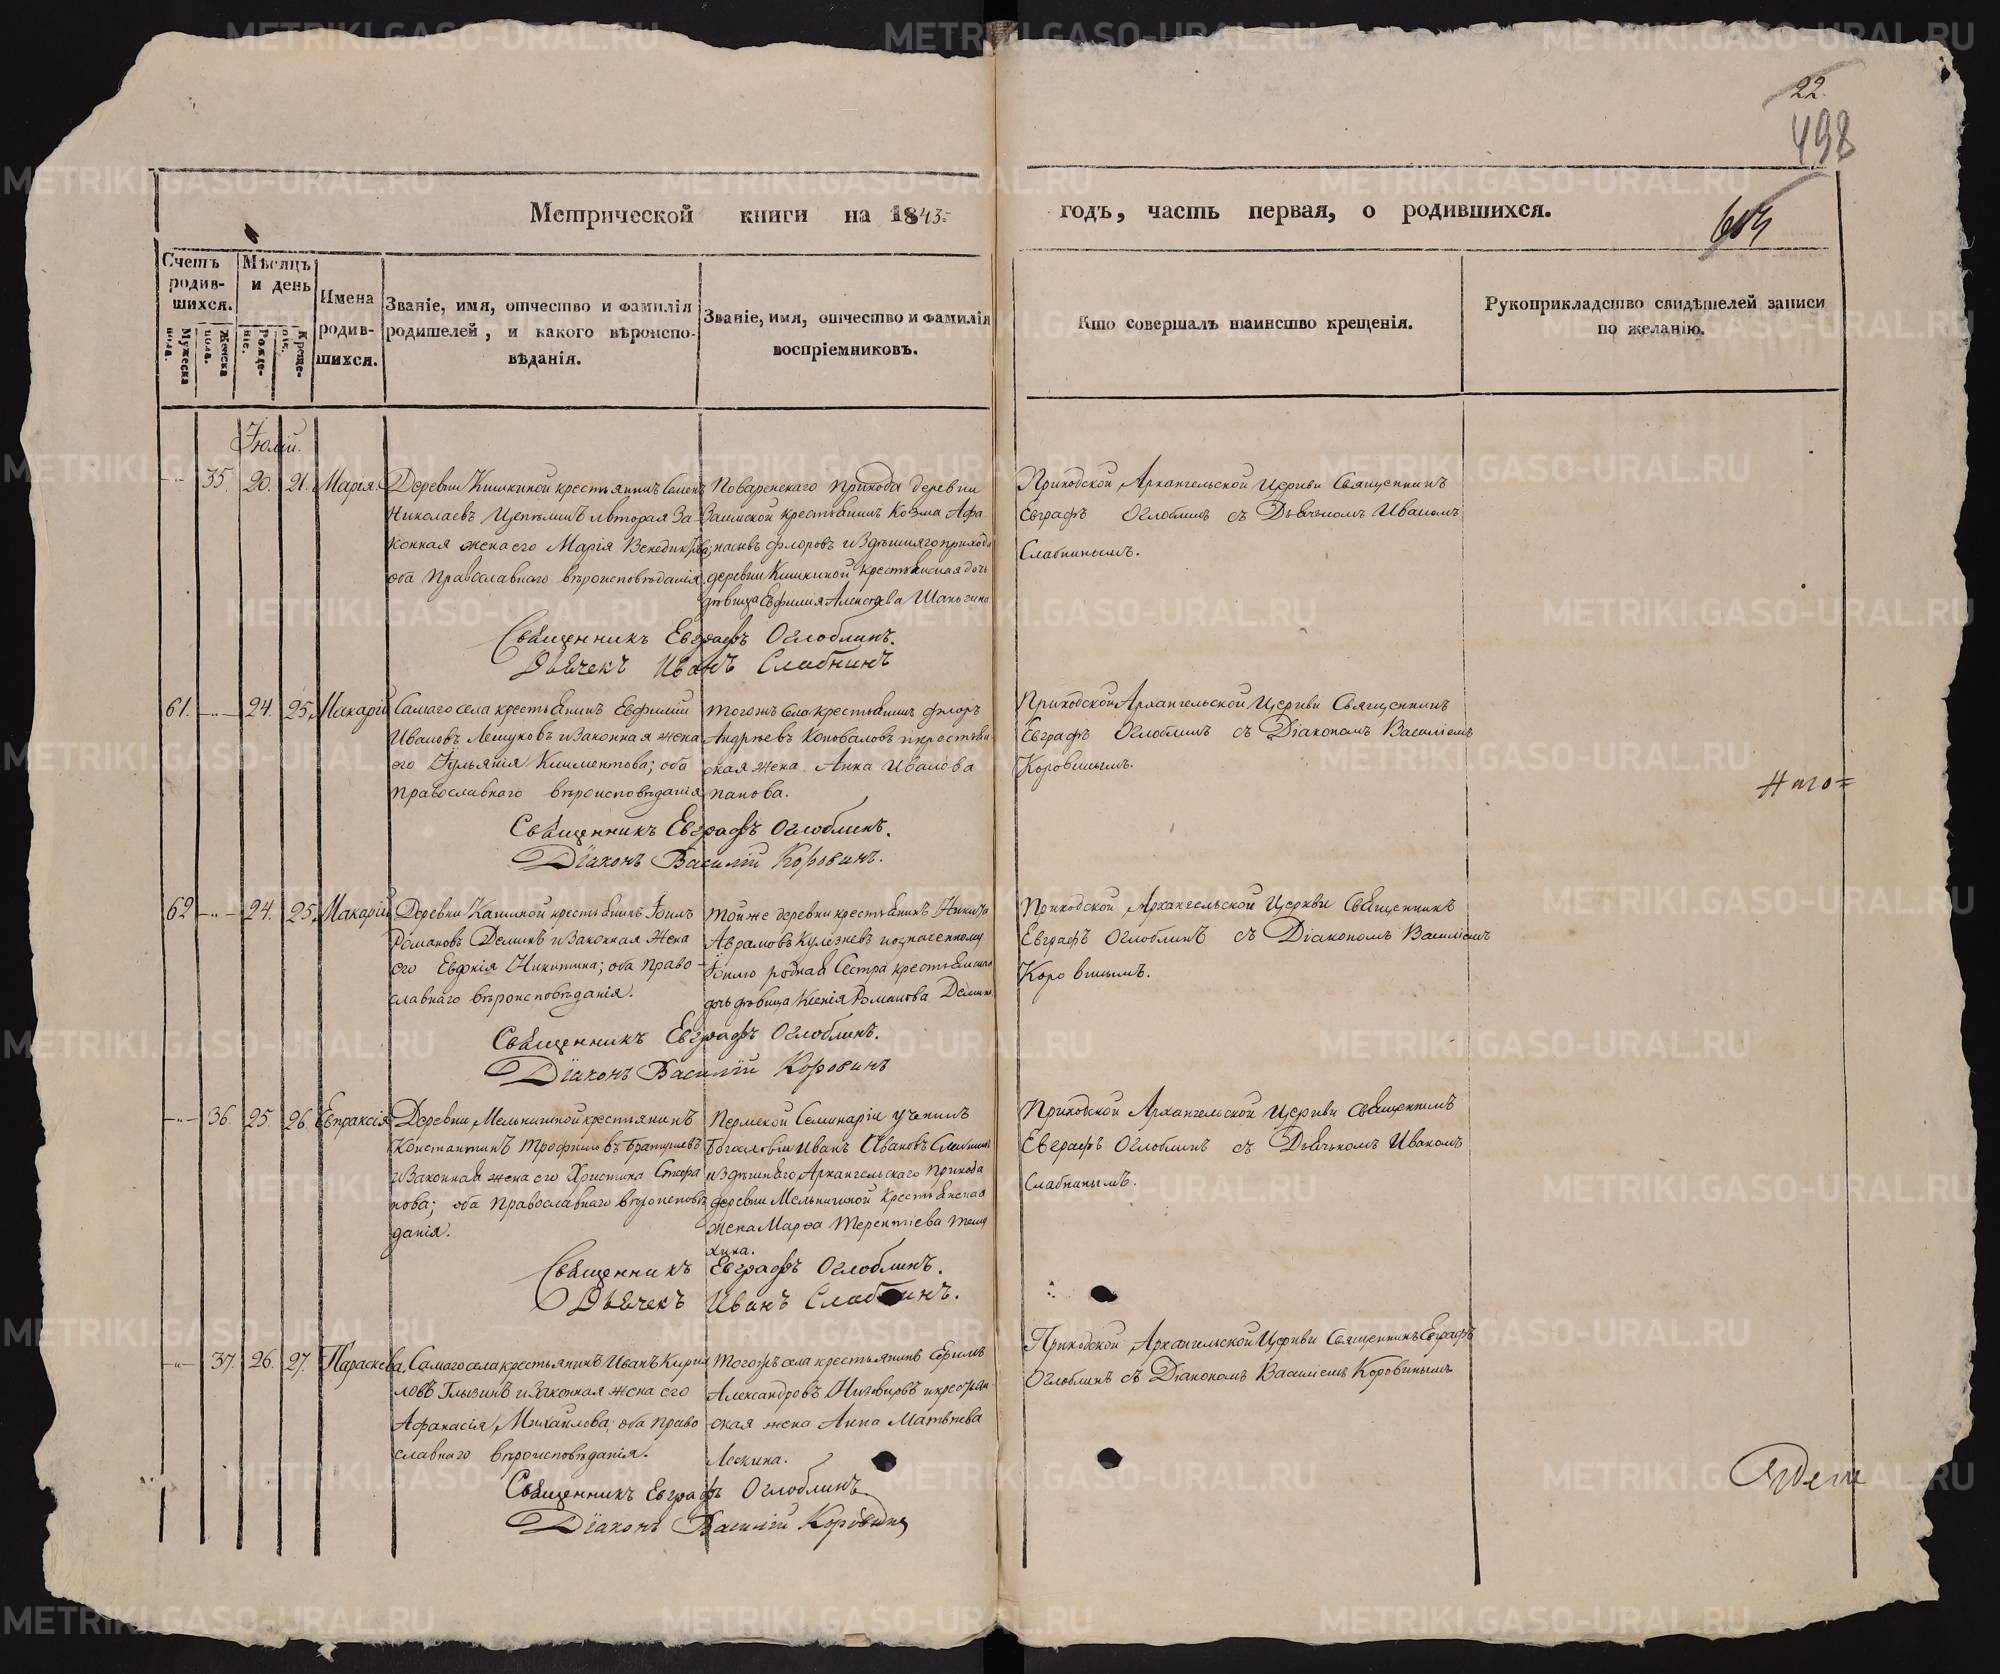 22.
498
Метрической книги на 1843 годъ, часть первая, о родившихся.
Счетъ родив-шихся.
Мужеска пола.
Женска пола.
Мѣсяцъ и день
Рожде-ніе.
Креще-ніе.
Имена родив-шихся.
Званіе, имя, отчество и фамилія родителей, и какого вѣроиспо-вѣданія.
Званіе, имя, отчество и фамилія воспріемниковъ.
Кто совершалъ таинство крещенія.
Рукоприкладство свидѣтелей записи по желанію.
Іюлій.
35. 20. 21. Марія.
Деревни Кишкиной крестьянинъ Семенъ
Николаевъ и вторая За-
конная жена его Марія
оба Православнаго вѣроисповѣданія.
Поваренскаго прихода деревни
Заимской крестьянинъ Козма Афа-
насьевъ Флоровъ и здѣшняго прихода
деревни Кишкиной крестьянская дочь
дѣвица Евфимія Алексѣева
Приходской Архангельской Церкви Священникъ
Евграфъ Оглоблинъ съ Дьячкомъ Иваномъ
Слабнинымъ.
Священникъ Евграфъ Оглоблинъ.
Дьячекъ Иванъ Слабнинъ
61. 24. 25. Макарій
Самаго села крестьянинъ Евфимій
Ивановъ и Законная жена
его Іульянія Климентова; оба
православнаго вѣроисповѣданія
тогожъ села крестьянинъ Флоръ
Андреевъ Коноваловъ и крестьян-
ская жена Анна Иванова
Панова.
Приходской Архангельской Церкви Священникъ
Евграфъ Оглоблинъ съ Діакономъ Василіемъ
Коровинымъ.
Священникъ Евграфъ Оглоблинъ.
Діаконъ Василій Коровинъ.
62 24. 25. Макарій
Деревни крестьянинъ Іоилъ
Романовъ Деминъ и Законная Жена
его Никитина; оба право-
славнаго вѣроисповѣданія.
той же деревни крестьянинъ Никита
Аврамовъ и означенному
Іоилю родная Сестра крестьянская
дочь дѣвица Ксенія Романова Демина
Приходской Архангельской Церкви Священникъ
Евграфъ Оглоблинъ съ Діакономъ Василіемъ
Коровинымъ.
Священникъ Евграфъ Оглоблинъ.
Діаконъ Василій Коровинъ
36. 25. 26. Евпраксія
Деревни Мельничной крестьянинъ
Константинъ Трофимовъ
и Законная жена его Христина Стефа
нова; оба Православнаго вѣроисповѣ
данія.
Пермской Семинаріи ученикъ
Богословіи Иванъ Ивановъ
и здѣшняго Архангельскаго прихода
деревни Мельничной Крестьянская
жена Марѳа Терентіева
Приходской Архангельской Церкви священникъ
Евграфъ Оглоблинъ съ Дьячькомъ Иваномъ
Слабнинымъ.
Священникъ Евграфъ Оглоблинъ.
Дьячекъ Иванъ Слабнинъ.
37. 26. 27. Параскева.
Самаго села крестьянинъ Иванъ Кирил
ловъ и Законная жена его
Афанасія Михайлова; оба право
славнаго вѣроисповѣданія.
Тогожъ села крестьянинъ
Александровъ и крестьян-
ская жена Анна Матвѣева
Приходской Архангельской Церкви Священникъ Евграфъ
Оглоблинъ съ Діакономъ Василіемъ Коровинымъ
Священникъ Евграфъ Оглоблинъ
Діаконъ Василій Коровинъ
METRIKI.GASO-URAL.RU